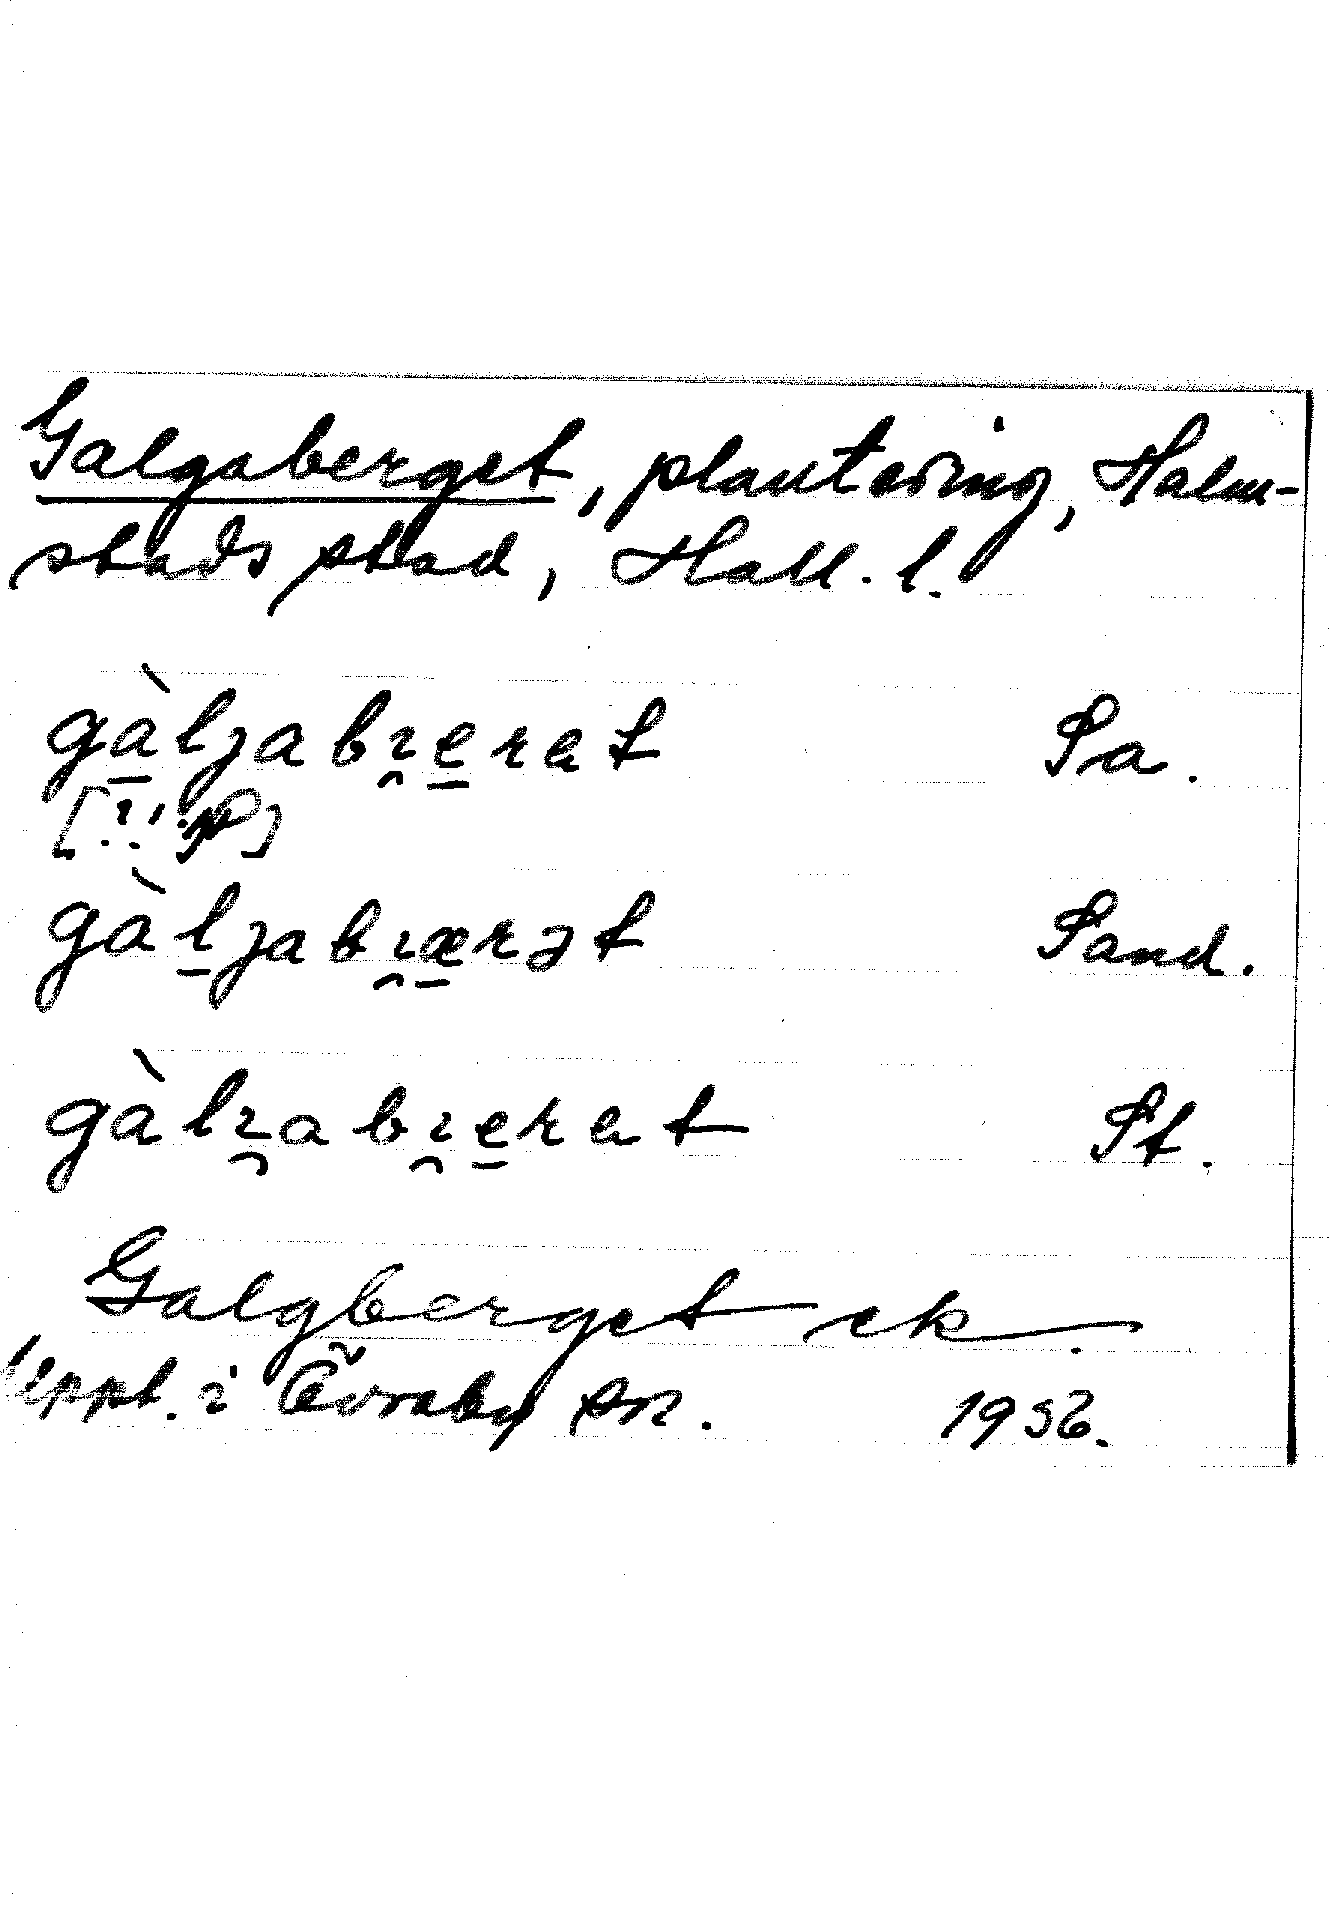 Galgaberget, plantering, Halm-
stads stad, Hall. l.
gàljabi̯erat Sa.
gàljabi̯ærət Sand.
gàli̯abi̯erat St.
Galgberget ek.
Uppt. i Övraby sn. 1936.